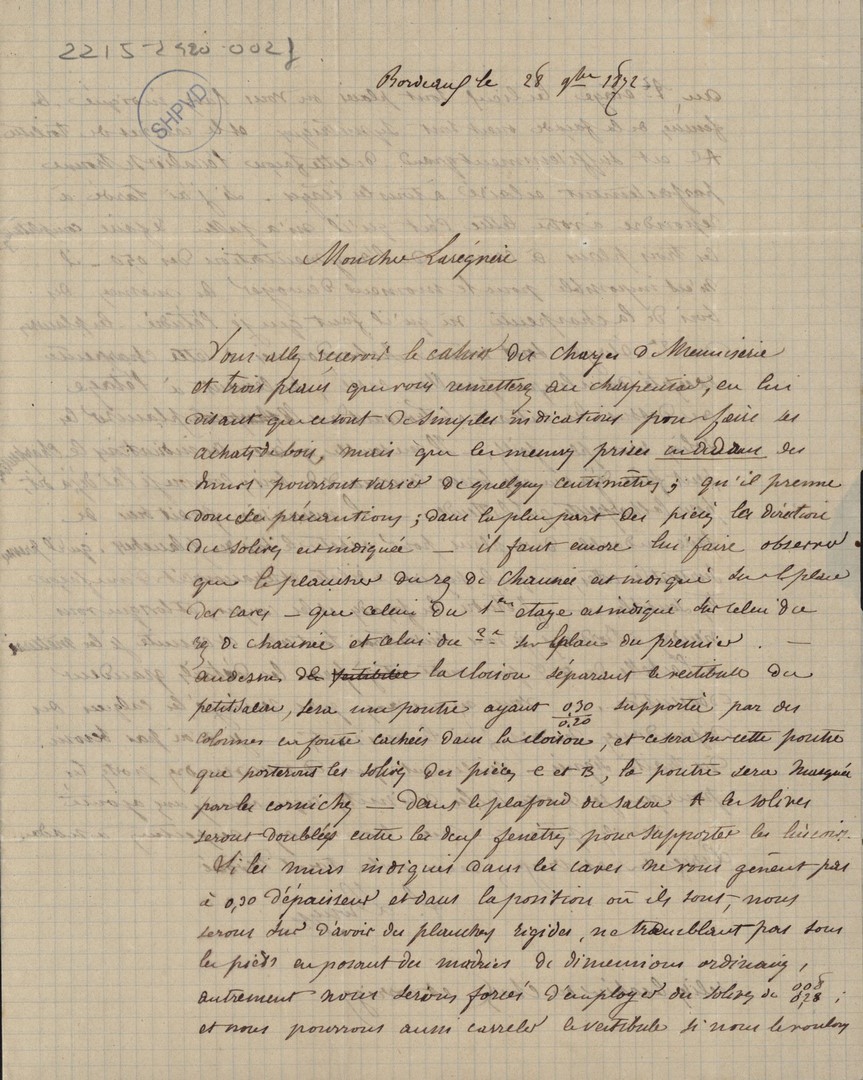 2215-2920-0021
SHPVD
Bordeaux le 28 9bre 1872
Mon cher Larégnère
Vous allez recevoir le cahier des charges de Menuiserie
et trois plans que vous remetterez au charpentier, en lui
disant que ce sont de simples indications pour faire ses
achats de bois, mais que les mesures prises au dedans des
murs pourront varier de quelques centimètres ; qu'il prenne
donc ses précautions ; dans la plupart des pièces la direction
des solives est indiquée — il faut encore lui faire observer
que le plancher du rez de chaussée est indiqué sur le plan
des caves — que celui du 1er etage est indiqué sur celui du
rez de chaussée et celui du 2e sur le plan du premier . —
au dessus de la cloison séparant le vestibule du
petit salon, sera une poutre ayant 0,30/0,20 supportée par des
colonnes en fonte cachées dans la cloison, et ce sera sur cette poutre
que porteront les solives des pièces C et B, la poutre sera masquée
par les corniches — dans le plafond du salon A les solives
seront doublés entre les deux fenêtres pour supporter les
Si les murs indiqués dans les caves ne vous gênent pas
à 0,30 d'épaisseur et dans la position où ils sont, nous
serons sur d'avoir des planchers rigides, ne tremblant pas sous
les pieds en posant des madriers de dimensions ordinaires,
autrement nous serions forcés d'employer des solives de 0,08/0,28 ;
et nous pourrons aussi carreler le vestibule si nous le voulons